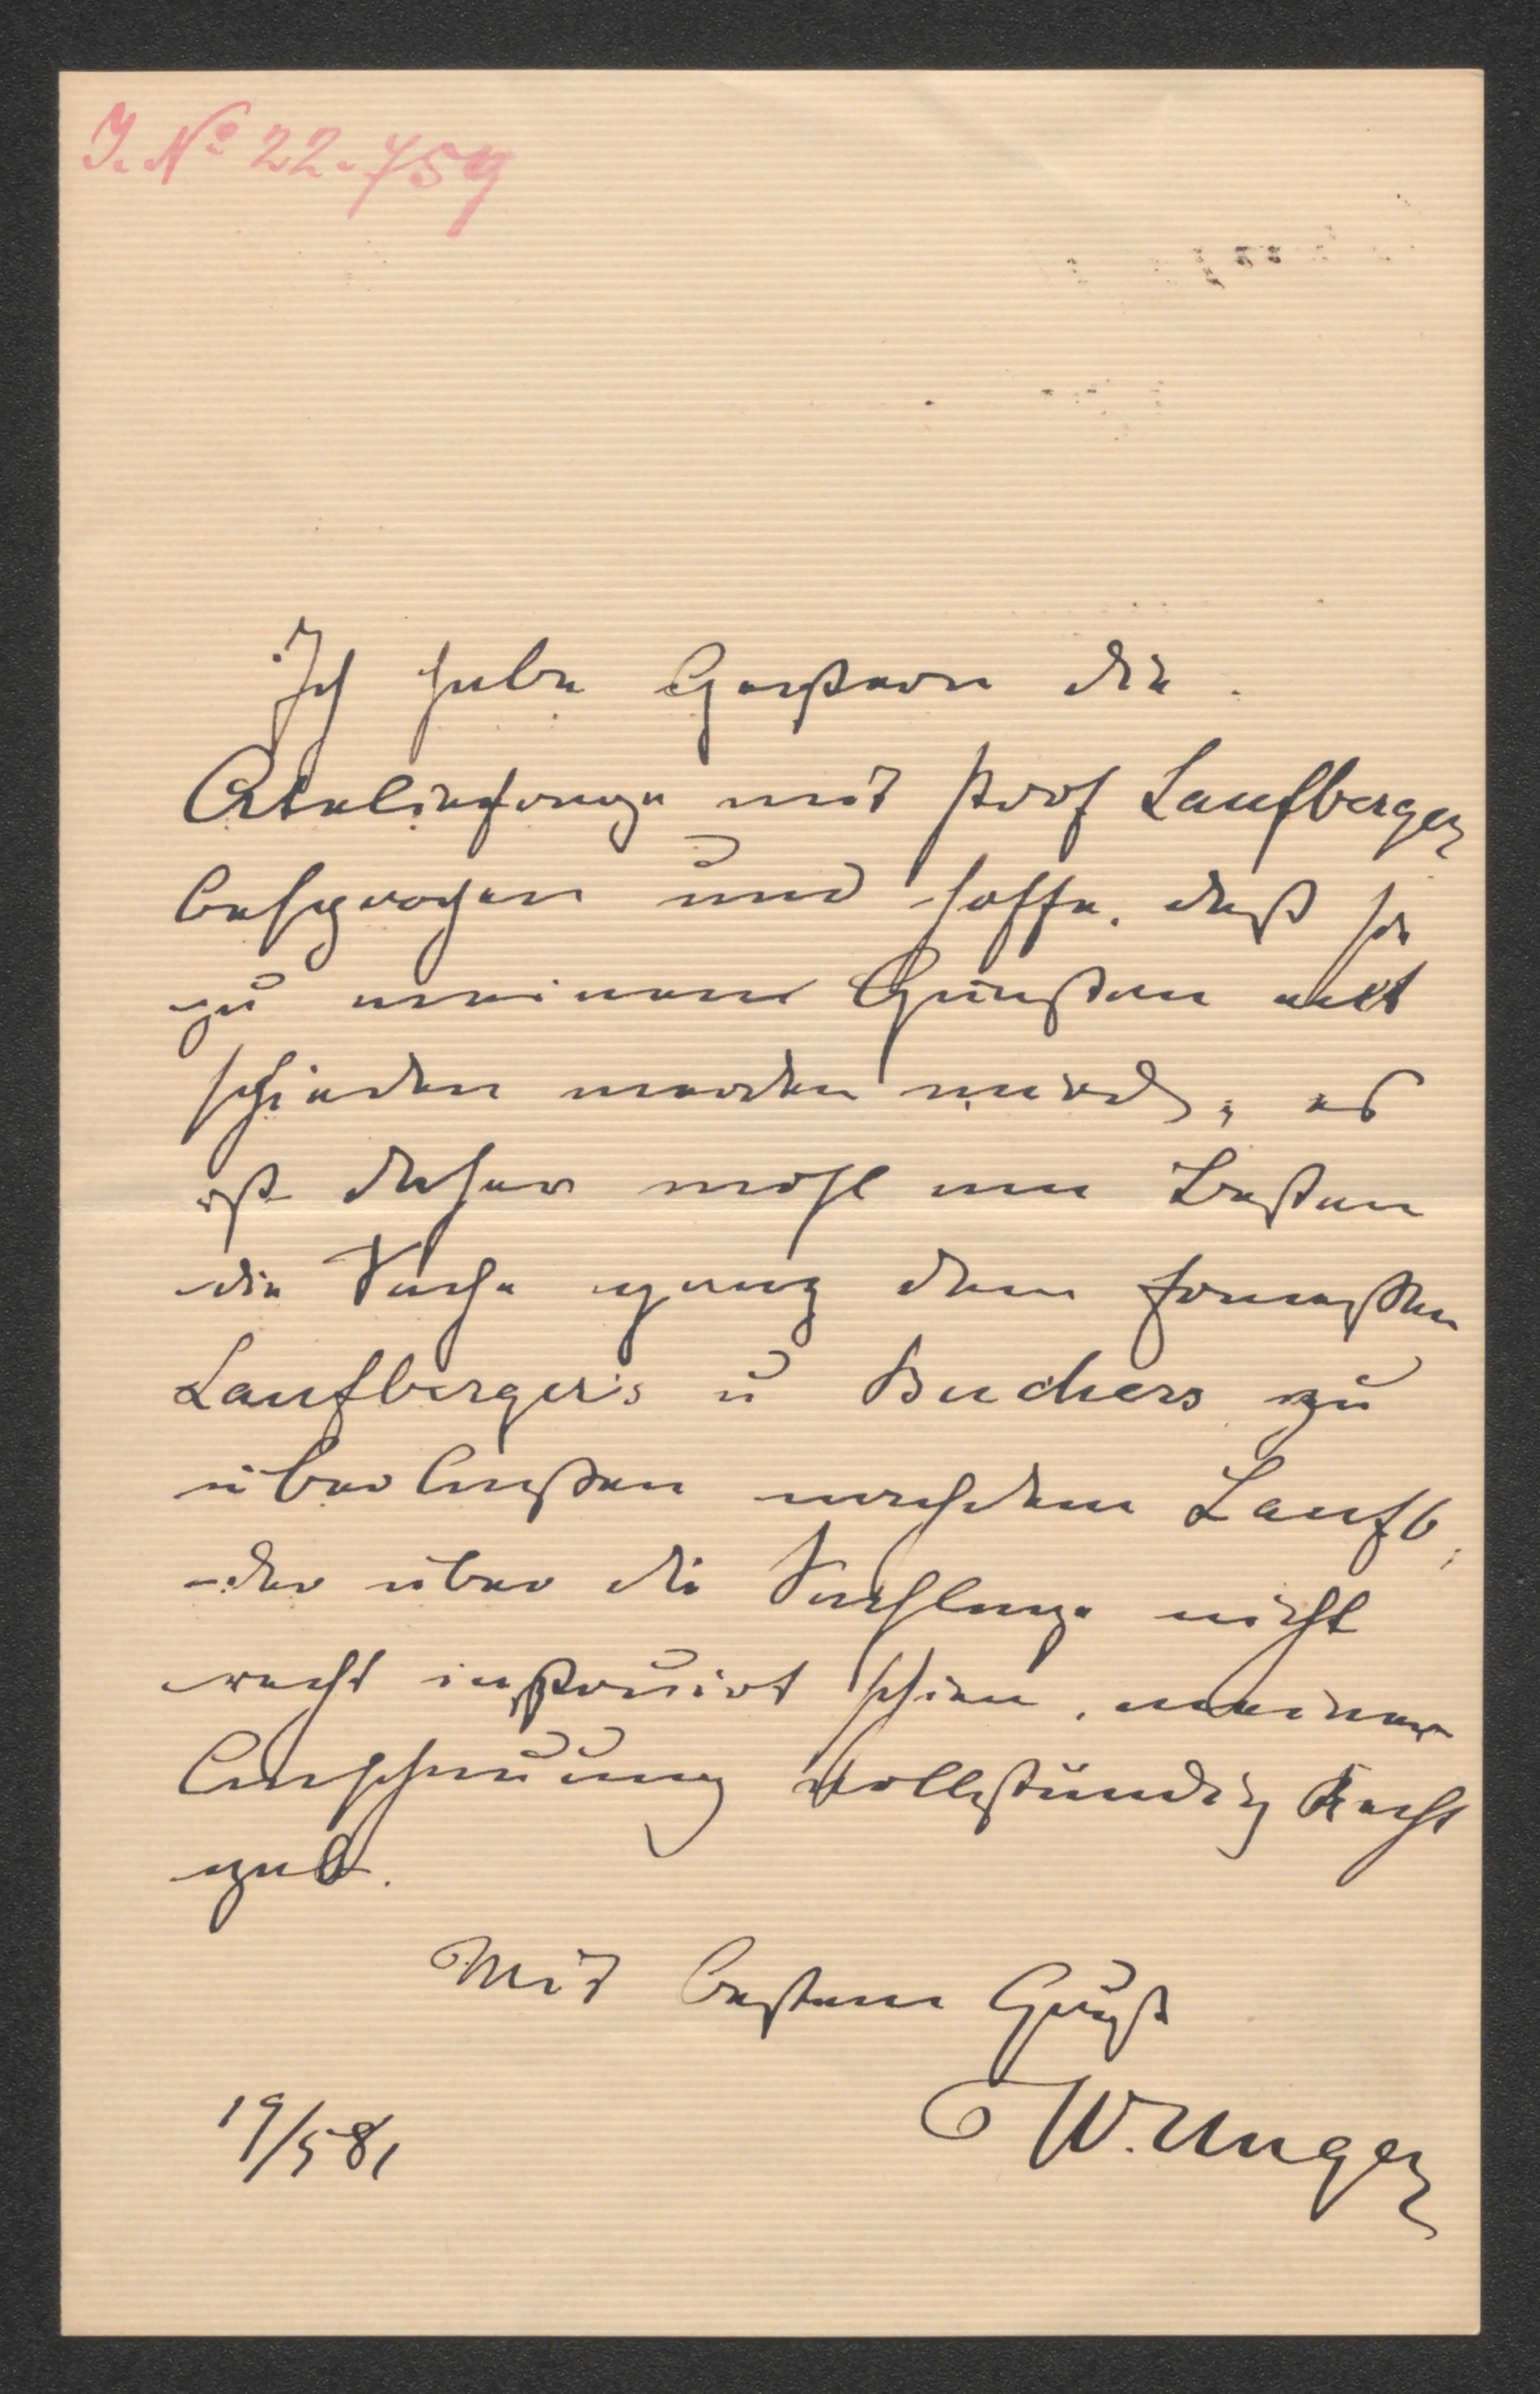 J. No 22.759
Ich habe Gestern die
Atelierfrage mit Prof Laufberger
besprochen und hoffe, daß sie
zu meinen Gunsten ent
schieden werden wird; es
ist daher wohl am Besten
die Sache ganz dem
Laufberger's u Buchers zu
überlassen nachdem Laufb,
der über die Sachlage nicht
recht instruirt schien, meiner
Anschauung vollständig Recht
gab.
Mit bestem Gruß
W. Unger
19/5 81